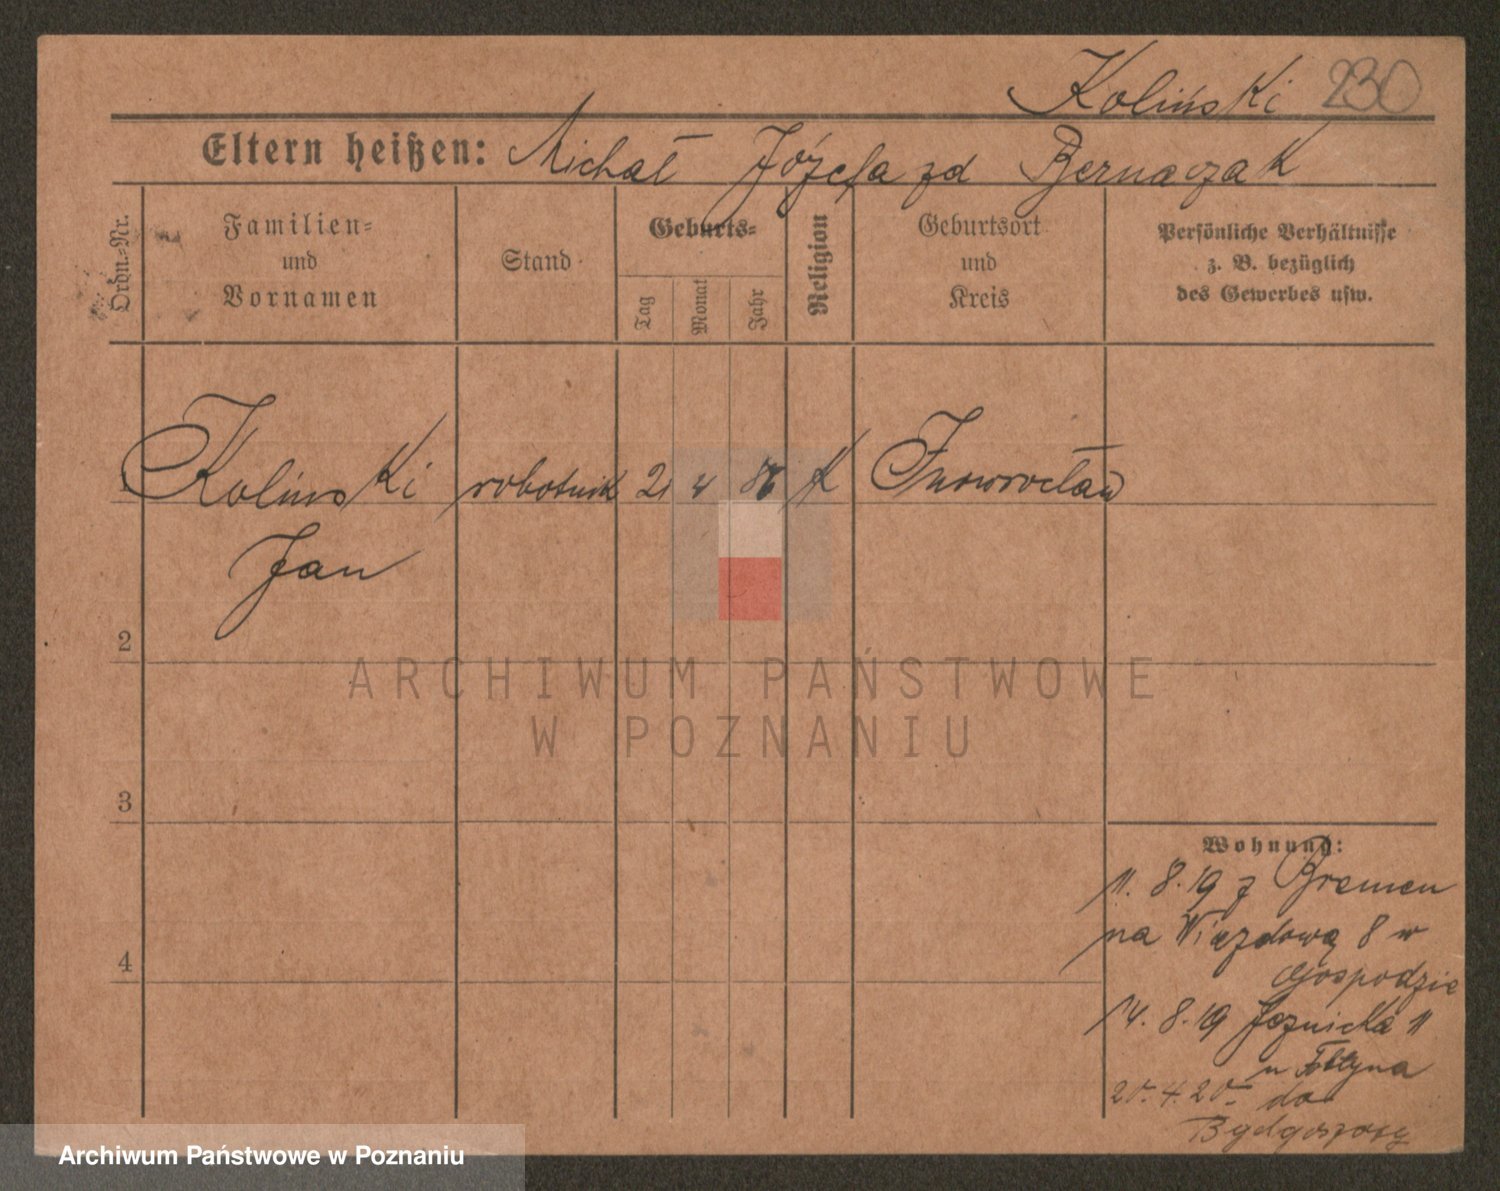 Koliński 230
Eltern heißen: Michał Józefa zd Bernaczak
Ordn.-Nr.
Familien- und Vornamen
Stand
Geburts-
Tag
Monat
Jahr
Religion
Geburtsort und Kreis
Persönliche Verhältnisse
z. B. bezüglich
des Gewerbes usw.
Koliński robotnik 2 4 86 K Inowrocław
Jan
2
3
4
Wohnung:
11. 8.19 z Bremen
na Wiazdową 8 w
Gospodzie
14. 8.19 11
u
20.4.20 do
Bydgoszczy
ARCHIWUM PAŃSTWOWE
W POZNANIU
Archiwum Państwowe w Poznaniu